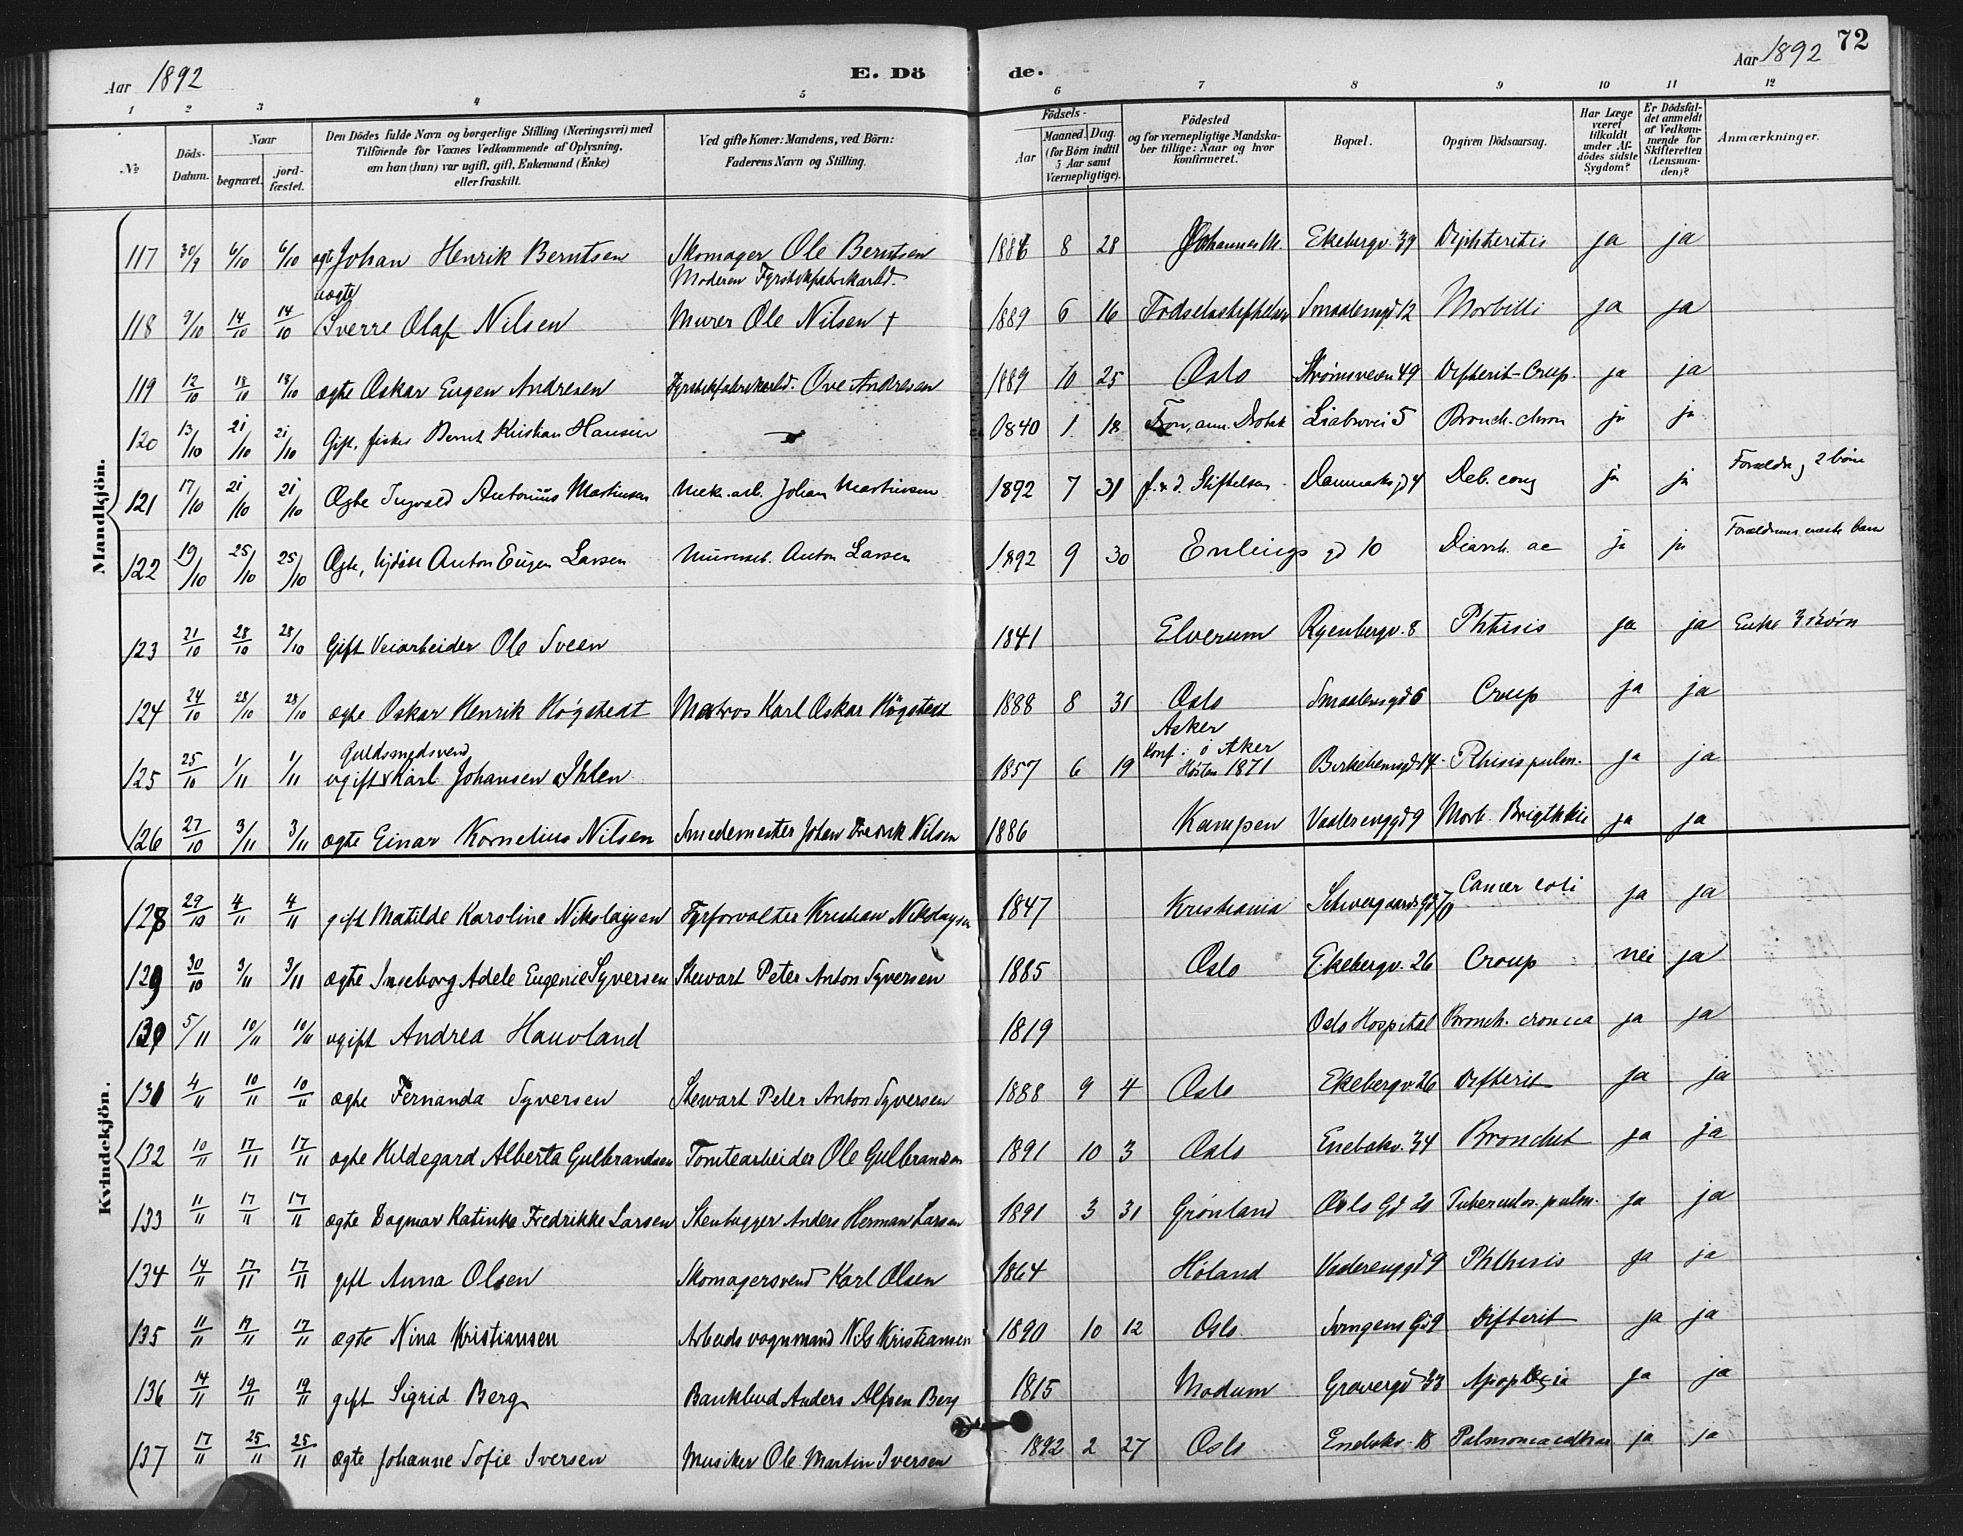 72
Aar 1892
E. Döde.
Aar 1892
1 2 3 4 5 6 7 8 9 10 11 12
№
Döds-Datum.
Naar
begravet.
jordfæstet.
Den Dödes fulde Navn og borgerlige Stilling (Næringsvei) med Tilföiende for Voxnes Vedkommende af Oplysning, om han (hun) var ugift, gift, Enkemand (Enke) eller fraskilt.
Ved gifte Koner: Mandens, ved Börn: Faderens Navn og Stilling.
Födsels-
Aar
Maaned. Dag.
(for Börn indtil 5 Aar samt Værnepligtige).
Födested og for værnepligtige Mandskaber tillige: Naar og hvor konfirmeret.
Bopæl.
Opgiven Dödsaarsag.
Har Læge været tilkaldt under Afdödes sidste Sygdom?
Er Dödsfaldet anmeldt af Vedkommende for Skifteretten (Lensmanden)?
Anmærkninger.
Mandkjön.
117 30/9 6/10 6/10 ægte Johan Henrik Berntsen Skomager Ole Berntsen 1886 8 28 Johannes M. Ekebergv. 39 Diphteritis ja ja
118 9/10 14/10 14/10 uægte Sverre Olaf Nilsen Moderen Fyrstikfabrikarbd. Murer Ole Nilsen † 1889 6 16 Fødselsstiftelsen Smaalensgd 12 Morbilli ja ja
119 12/10 18/10 18/10 ægte Oskar Eugen Andresen Fyrstikfabrikarbd. Ove Andresen 1889 10 25 Oslo Strømsveien 49 Difterit-Croup. ja ja
120 13/10 21/10 21/10 Gift, fisker Bernt Kristian Hansen 1840 1 18 Dröbak Liabrovei 5 Bronch. chron ja ja
121 17/10 21/10 21/10 Ægte Ingvald Antonius Martinsen Mek. arb. Johan Martinsen 1892 7 31 Stiftelsen Danmarks gd 4 Deb. cong ja ja Forældre 2 börn
122 19/10 25/10 25/10 Ægte, hjdøbt Anton Eugen Larsen Murerarb. Anton Larsen 1892 9 30 Enlings gd 10 Diarrh. ac ja ja Forældrenes eneste barn
123 21/10 28/10 28/10 Gift Veiarbeider Ole Sveen 1841 Elverum Ryenbergv. 8 Phtisis ja ja Enke 3 börn
124 24/10 28/10 28/10 ægte Oskar Henrik Högstedt Matros Karl Oskar Högstedt 1888 8 31 Oslo Smaalensgd 6 Croup ja ja
125 25/10 1/11 1/11 ugift Guldsmedsvend Karl Johansen Ihlen 1857 6 19 Asker Konf. i Aker Høsten 1871 Birkebeinsgd 14 Phtisis pulm. ja ja
126 27/10 3/11 3/11 ægte Einar Kornelius Nilsen Smedemester Johan Fredrik Nilsen 1886 Kampen Vaalerenggd 9 Morb. Brigthii ja ja
Kvindekjön.
128 29/10 4/11 4/11 gift Matilde Karoline Nikolaysen Fyrforvalter Kristian Nikolaysen 1847 Kristiania Schweigaards Gd Cancer coli ja ja
129 30/10 3/11 3/11 ægte Ingeborg Adele Eugenie Syversen Stewart Peter Anton Syversen 1885 Oslo Ekebergv. 26 Croup nei ja
130 5/11 10/11 10/11 ugift Andrea Hauvland 1819 Oslo Hospital Bronch. cronica ja ja
131 4/11 10/11 10/11 ægte Fernanda Syversen Stewart Peter Anton Syversen 1888 9 4 Oslo Ekebergv 26 Difterit ja ja
132 10/11 17/11 17/11 ægte Hildegard Alberta Gulbrandsen Tomtearbeider Ole Gulbrandsen 1891 10 3 Oslo Enebakv. 34 Bronchit ja ja
133 11/11 17/11 17/11 ægte Dagmar Katinka Fredrikke Larsen Stenhugger Anders Herman Larsen 1891 3 31 Grönland Oslo Gd 21 Tuberculos. pulm. ja ja
134 14/11 17/11 17/11 gift Anna Olsen Skomagersvend Karl Olsen 1864 Höland Vaalerenggd 9 Phthisis ja ja
135 11/11 17/11 17/11 ægte Nina Kristiansen Arbeidsvognmand Nils Kristiansen 1890 10 12 Oslo Svingens Gd 9 Difterit ja ja
136 14/11 19/11 19/11 gift Sigrid Berg Bankbud Anders Alfsen Berg 1815 Modum Gravergd 33 Apoplexia ja ja
137 17/11 25/11 25/11 ægte Johanne Sofie Iversen Musiker Ole Martin Iversen 1892 2 27 Oslo Enebakv. 18 ja ja